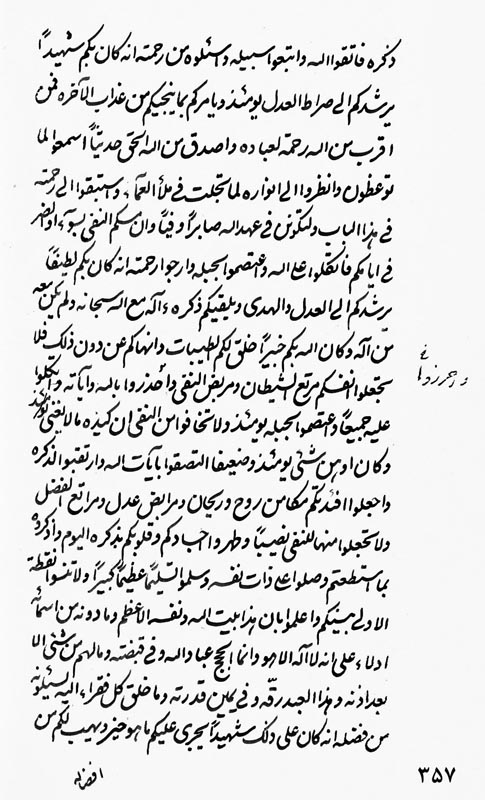 ذكره فاتقوا الله واتبعوا سبيله واسئلوه من رحمته انه كان بكم شهيداً
يرشدكم الى صراط العدل يومئذ ويامركم بما ينجيكم من عذاب الآخرة فمن
اقرب من الله رحمة لعباده واصدق من الله الحق حديثاً اسمعوا لما
توعظون وانظروا الى انواره لما تجلت في ملأ العمآء واستبقوا الى رحمته
في هذا الباب ولتكونن في عهد الله صابراً وفياً وان مسكم النفي بسوء او الضر
في ايامكم فاتكلوا على الله واعتصموا بحبله وارجوا رحمته انه كان بكم لطيفاً
يرشدكم الى العدل والهدى ويلقيكم ذكره ءآله مع الله سبحانه ولم يكن معه
من آله وكان الله بكم خبيراً خلق لكم الطيبات وانهاكم عن دون ذلك فلا
تجعلوا انفسكم مرتع الشيطان ومربض النفي واحذروا بالله وآياته واتكلوا
عليه جميعاً واعتصموا بحبله يومئذ ولا تخافوا من النفي ان كيده مالا يغني يومئذ
وكان اوهن من شئ يومئذ وضعيفا التصقوا بآيات الله وارتقبوا لذكره
واجعلوا افئدتكم مكامن روح وريحان ومرابض عدل ومراتع الفضل
ولا تجعلوا منها للنفي نصيباً وطهروا اجسادكم وقلوبكم بذكره اليوم واذكروه
بما استطعتم وصلوا على ذات نفسه وسلموا تسليماً عظيماً كبيراً ولا تنسوا نقطة
الاولى بينكم واعلموا بان هذا بيت الله ونفسه الاعظم وما دونه من اسمآئه
ادلاء على انه لا آله الا هو وانما الحجج عباد الله وفي قبضته وما لهم من شئ الا
بعد اذنه وهذا العبد رقه وفي يمين قدرته وما خلق كل فقراء اليه يسئلونه
من فضله انه كان على ذلك شهيداً يجري عليكم ما هو خير ويهب لكم من
افضاله
٣٥٧